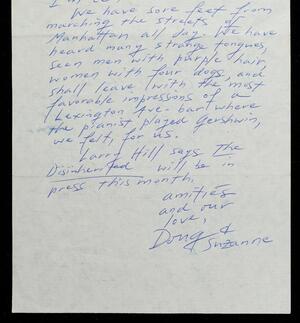 We have sore feet from
marching the streets of
Manhattan all day. We have
heard many strange tongues,
seen men with purple hair,
women with four dogs, and
shall leave with the most
favorable impressions of a
Lexington Ave. bar where
the pianist played Gershwin,
we felt, for us.
Larry Hill says The
Disinherited will be in
press this month.
amities
and our
love,
Doug &
Suzanne